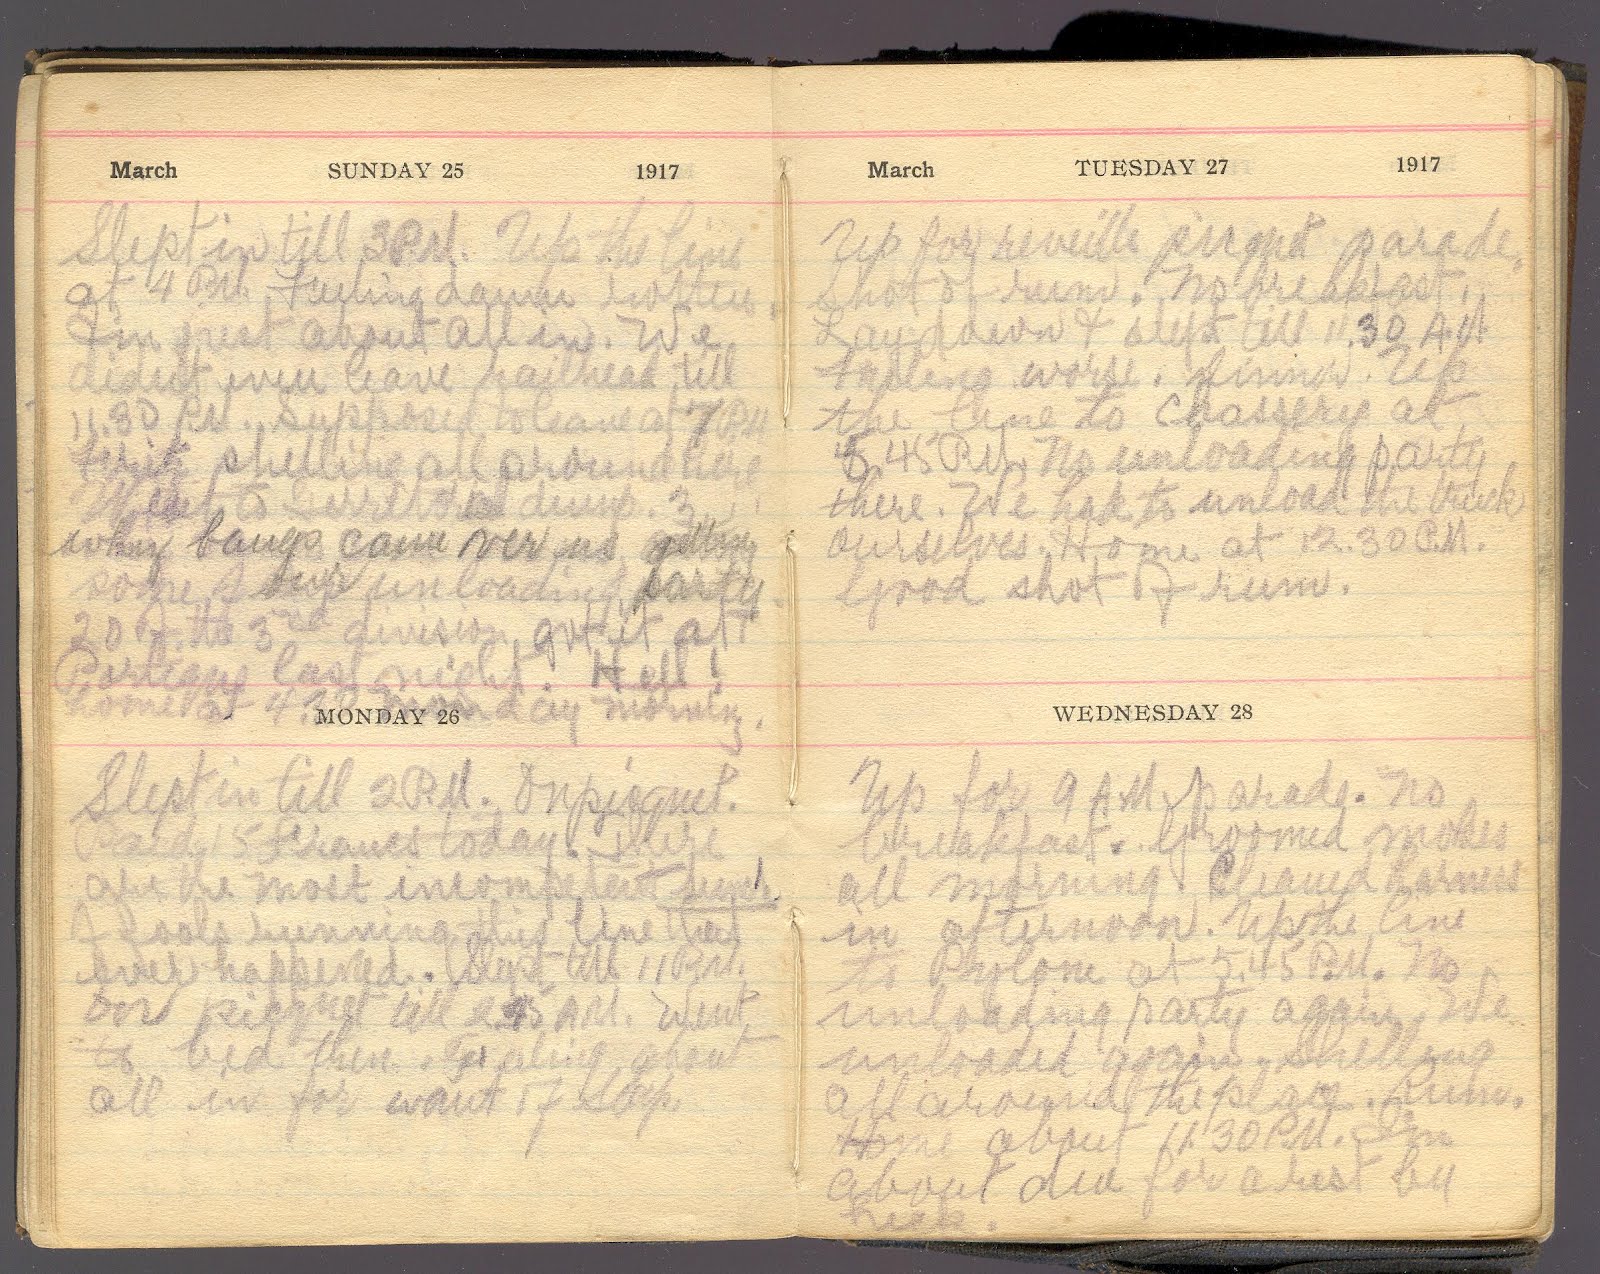 March SUNDAY 25 1917
Slept in till 3 P.M. Up the line
at 4 P.M. Feeling damn rotten.
I'm just about all in. We
didn't even leave railhead till
11.30 P.M. Supposed to leave at 7 P.M
Fritz shelling all around here
Went to dump. 3
whizz bangs came over us getting
some of our unloading party.
20 of the 3rd division got it at
last night. Hell!
home at 4.30 Monday morning.
MONDAY 26
Slept in till 2 P.M. On picquet.
Paid 15 francs today. These
are the most incompetent bunch
of fools running this line that
ever happened. Slept till 11 P.M.
On picquet till 2.45 A.M. Went
to bed then. Feeling about
all in for want of sleep.
March TUESDAY 27 1917
Up for reveille picquet parade.
Shot of rum. No breakfast.
Lay down & slept till 11.30 A.M.
feeling worse. Dinner. Up
the line to Chasserie at
5.45 P.M. No unloading party
there. We had to unload the truck
ourselves. Home at 12.30 P.M.
Good shot of rum.
WEDNESDAY 28
Up for 9 A.M. parade. No
breakfast. Groomed mokes
all morning. Cleaned harness
in afternoon. Up the line
to Pylone at 5.45 P.M. No
unloading party again. We
unloaded again. Shelling
all around the place. Rum.
Home about 11.30 P.M. I'm
about due for a rest by
heck.